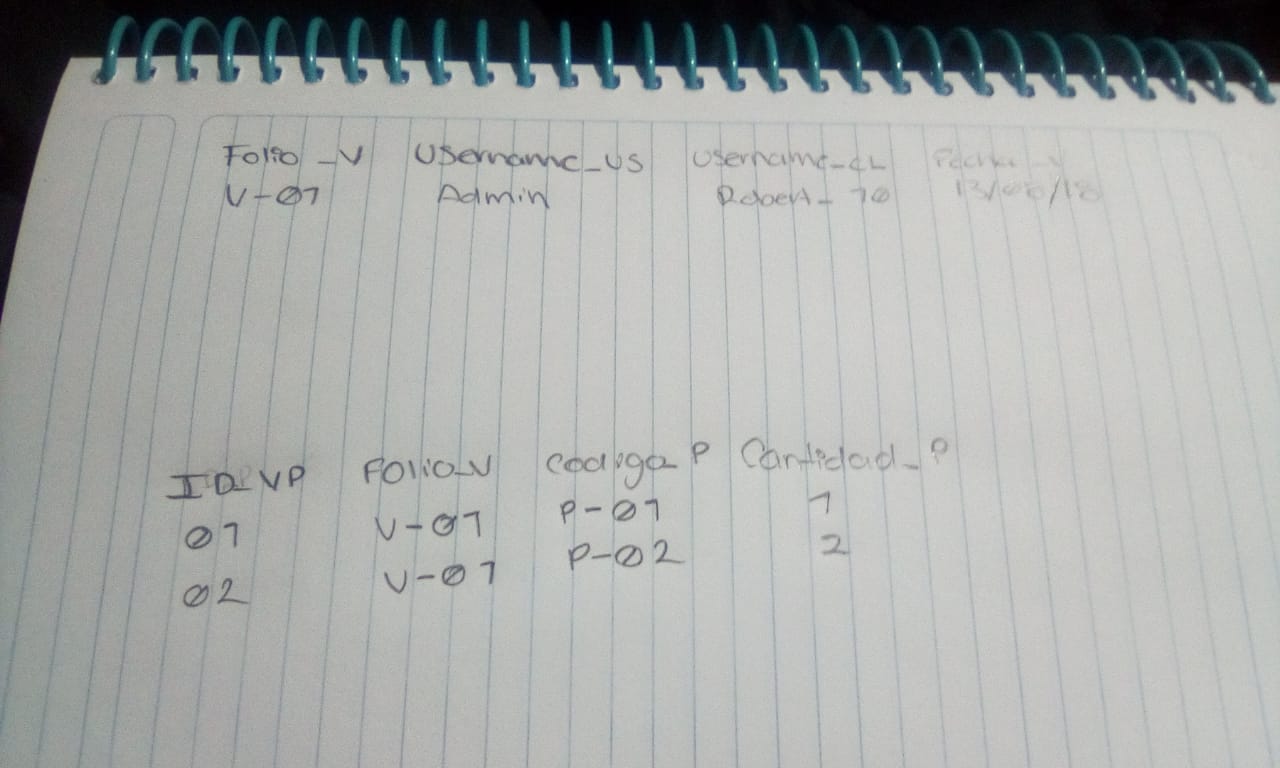 Folio_V Username_US Username_CL Fecha_V
V-01 Admin Robert_10 13/08/18
ID_VP Folio_V Codigo_P Cantidad_P
01 V-01 P-01 1
02 V-01 P-02 2